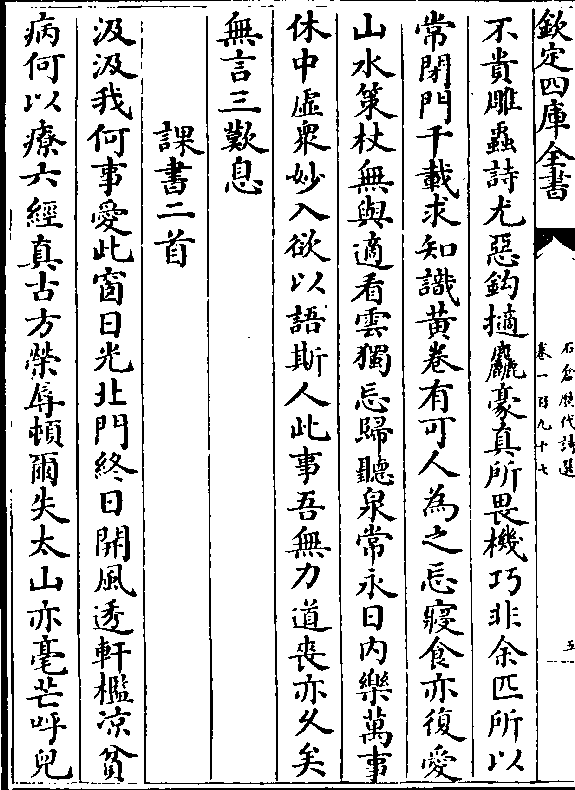 欽定四庫全書
石倉歷代詩選
卷一百九十七
五
不貴雕蟲詩尤惡鈎擿麤豪真所畏機巧非余匹所以
常閉門千載求知識黄卷有可人為之忘寢食亦復愛
山水策杖無與適看雲獨忘歸聽泉常永日内樂萬事
休中虛衆妙入欲以語斯人此事吾無力道喪亦久矣
無言三歎息
課書二首
汲汲我何事愛此窗日光北門終日開風透軒檻凉貧
病何以療六經真古方榮辱頓爾失太山亦毫芒呼兒